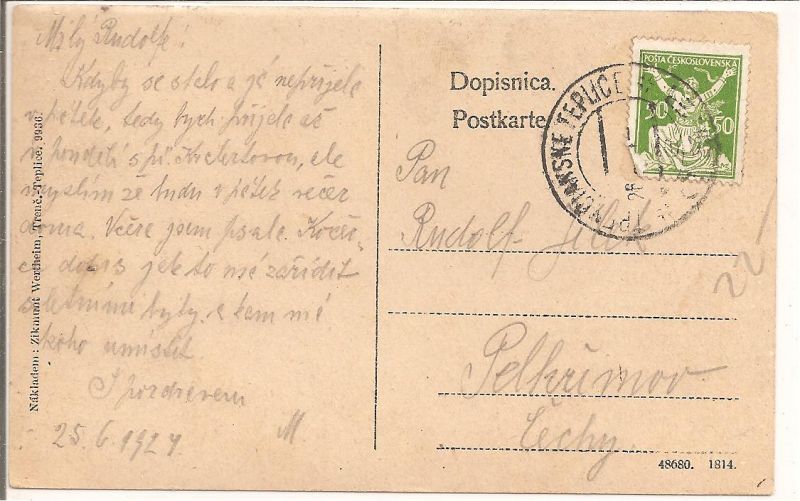 Milý Rudolfe!
Kdyby se stalo a já nepřijela
v pátek, tedy bych přijela až
v pondělí s pí. ale
myslím že budu v pátek večer
doma. Včera jsem psala
dopis jak to má zařídit
s letními byty a kam má
koho umístit
S pozdravem
25.6.1921 M
Nákladem: Zikmunt Wertheim, Trenč.-Teplice. 9936
Dopisnica.
Postkarte
POSTA ČESKOSLOVENSKÁ
50 50
TRENČIANSKE TEPLICE
26
Pan
Rudolf
Pelhřimov
Čechy.
22
48680. 1814.